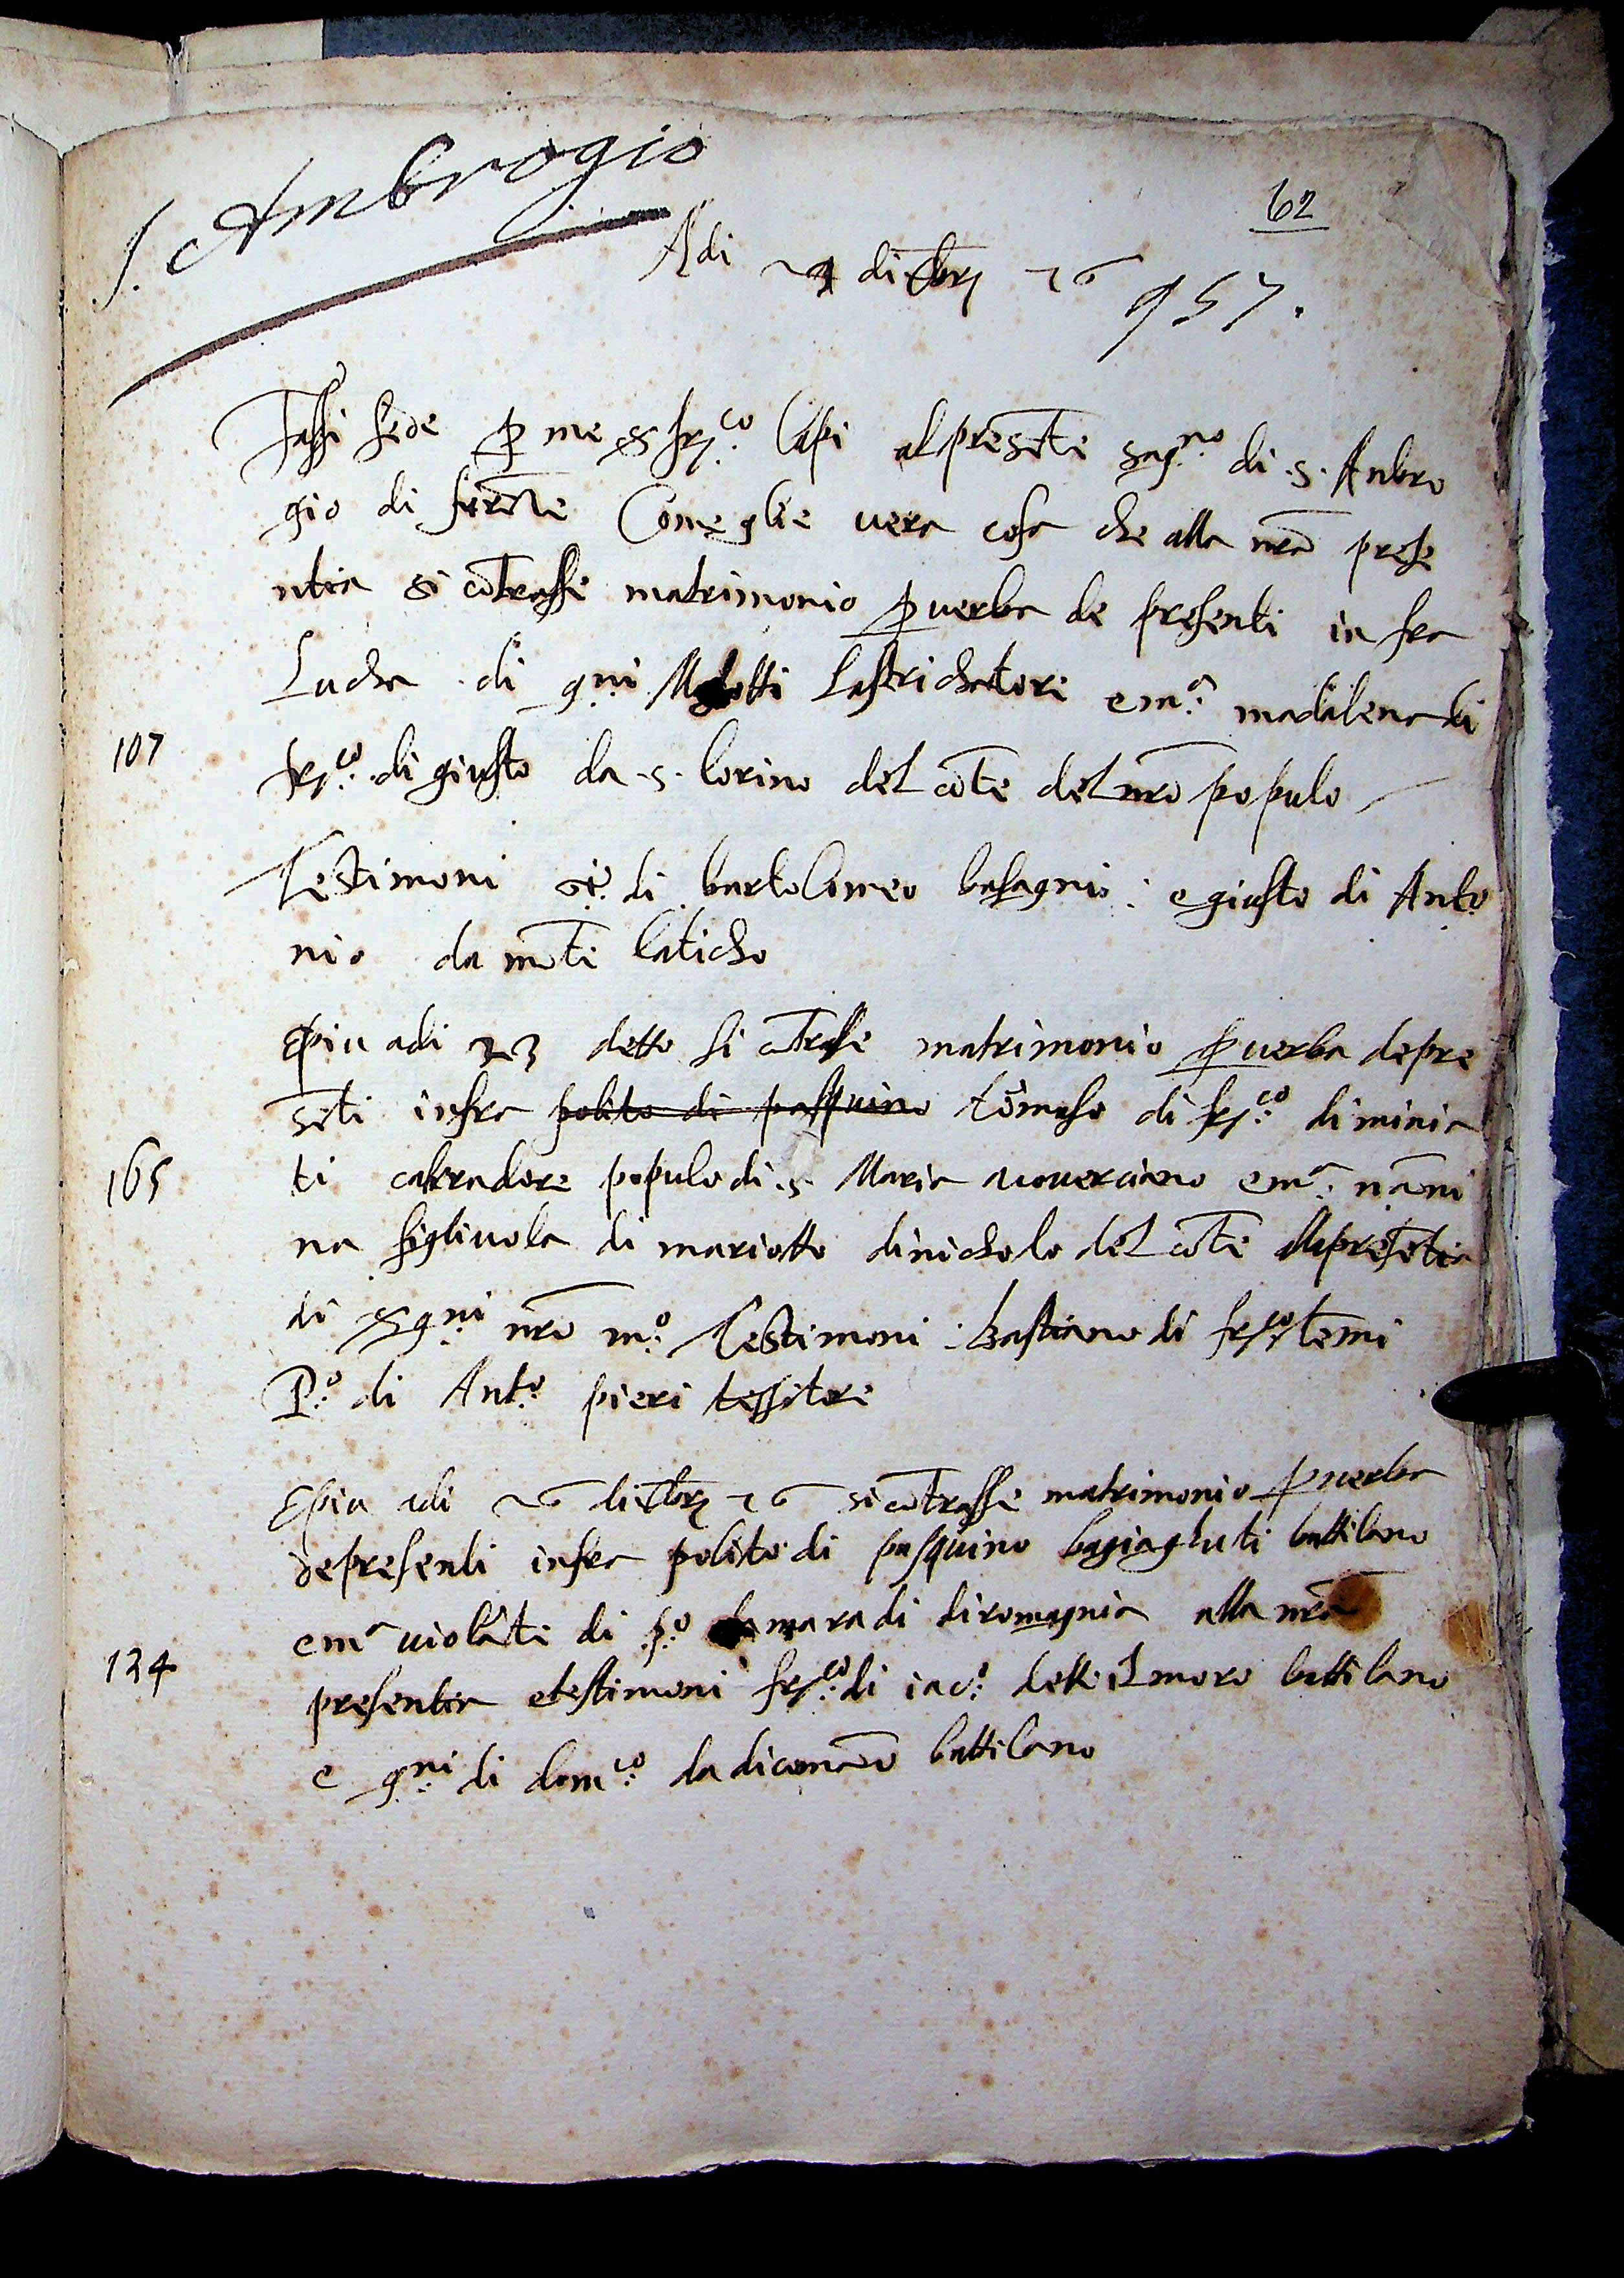 S. Ambrogio
62
Adi di
957.
Fassi fede p me s frco lapi al presēte sagno di .s. Anbro
gio di firēze Come glie vera cosa che alla nrā prese
ntia si cōtrasse matrimonio p verba de presenti in fra
Lucha di gni lastrichatore e ma madalena di
107
frco di giusto da .s. lorino del cōte del nrō populo
Testimoni di bartolomeo e giusto di Anto
nio da mōti laticho
Epiu adi 23 detto si cōtrasse matrimonio p verba de pre
sēti infra polito di pasquino tōmaso di frco di minia
165
ti populo di .s. Maria a novercianо e ma nānni
na figliuola di mariotto di nicholo del cōte alla presētia
di s gni nrō mo Testimoni bastiano di frco
Po di Anto pieri tessitore
Epiu adi di si cōtrasse matrimonio p verba
de presenti infra polito di pasquino battilano
e ma violāte di po da maradi di romagnia alla nrā
134
presentia e testimoni frco di iaco detto il moro battilano
e gni di domco da dicomāo battilano